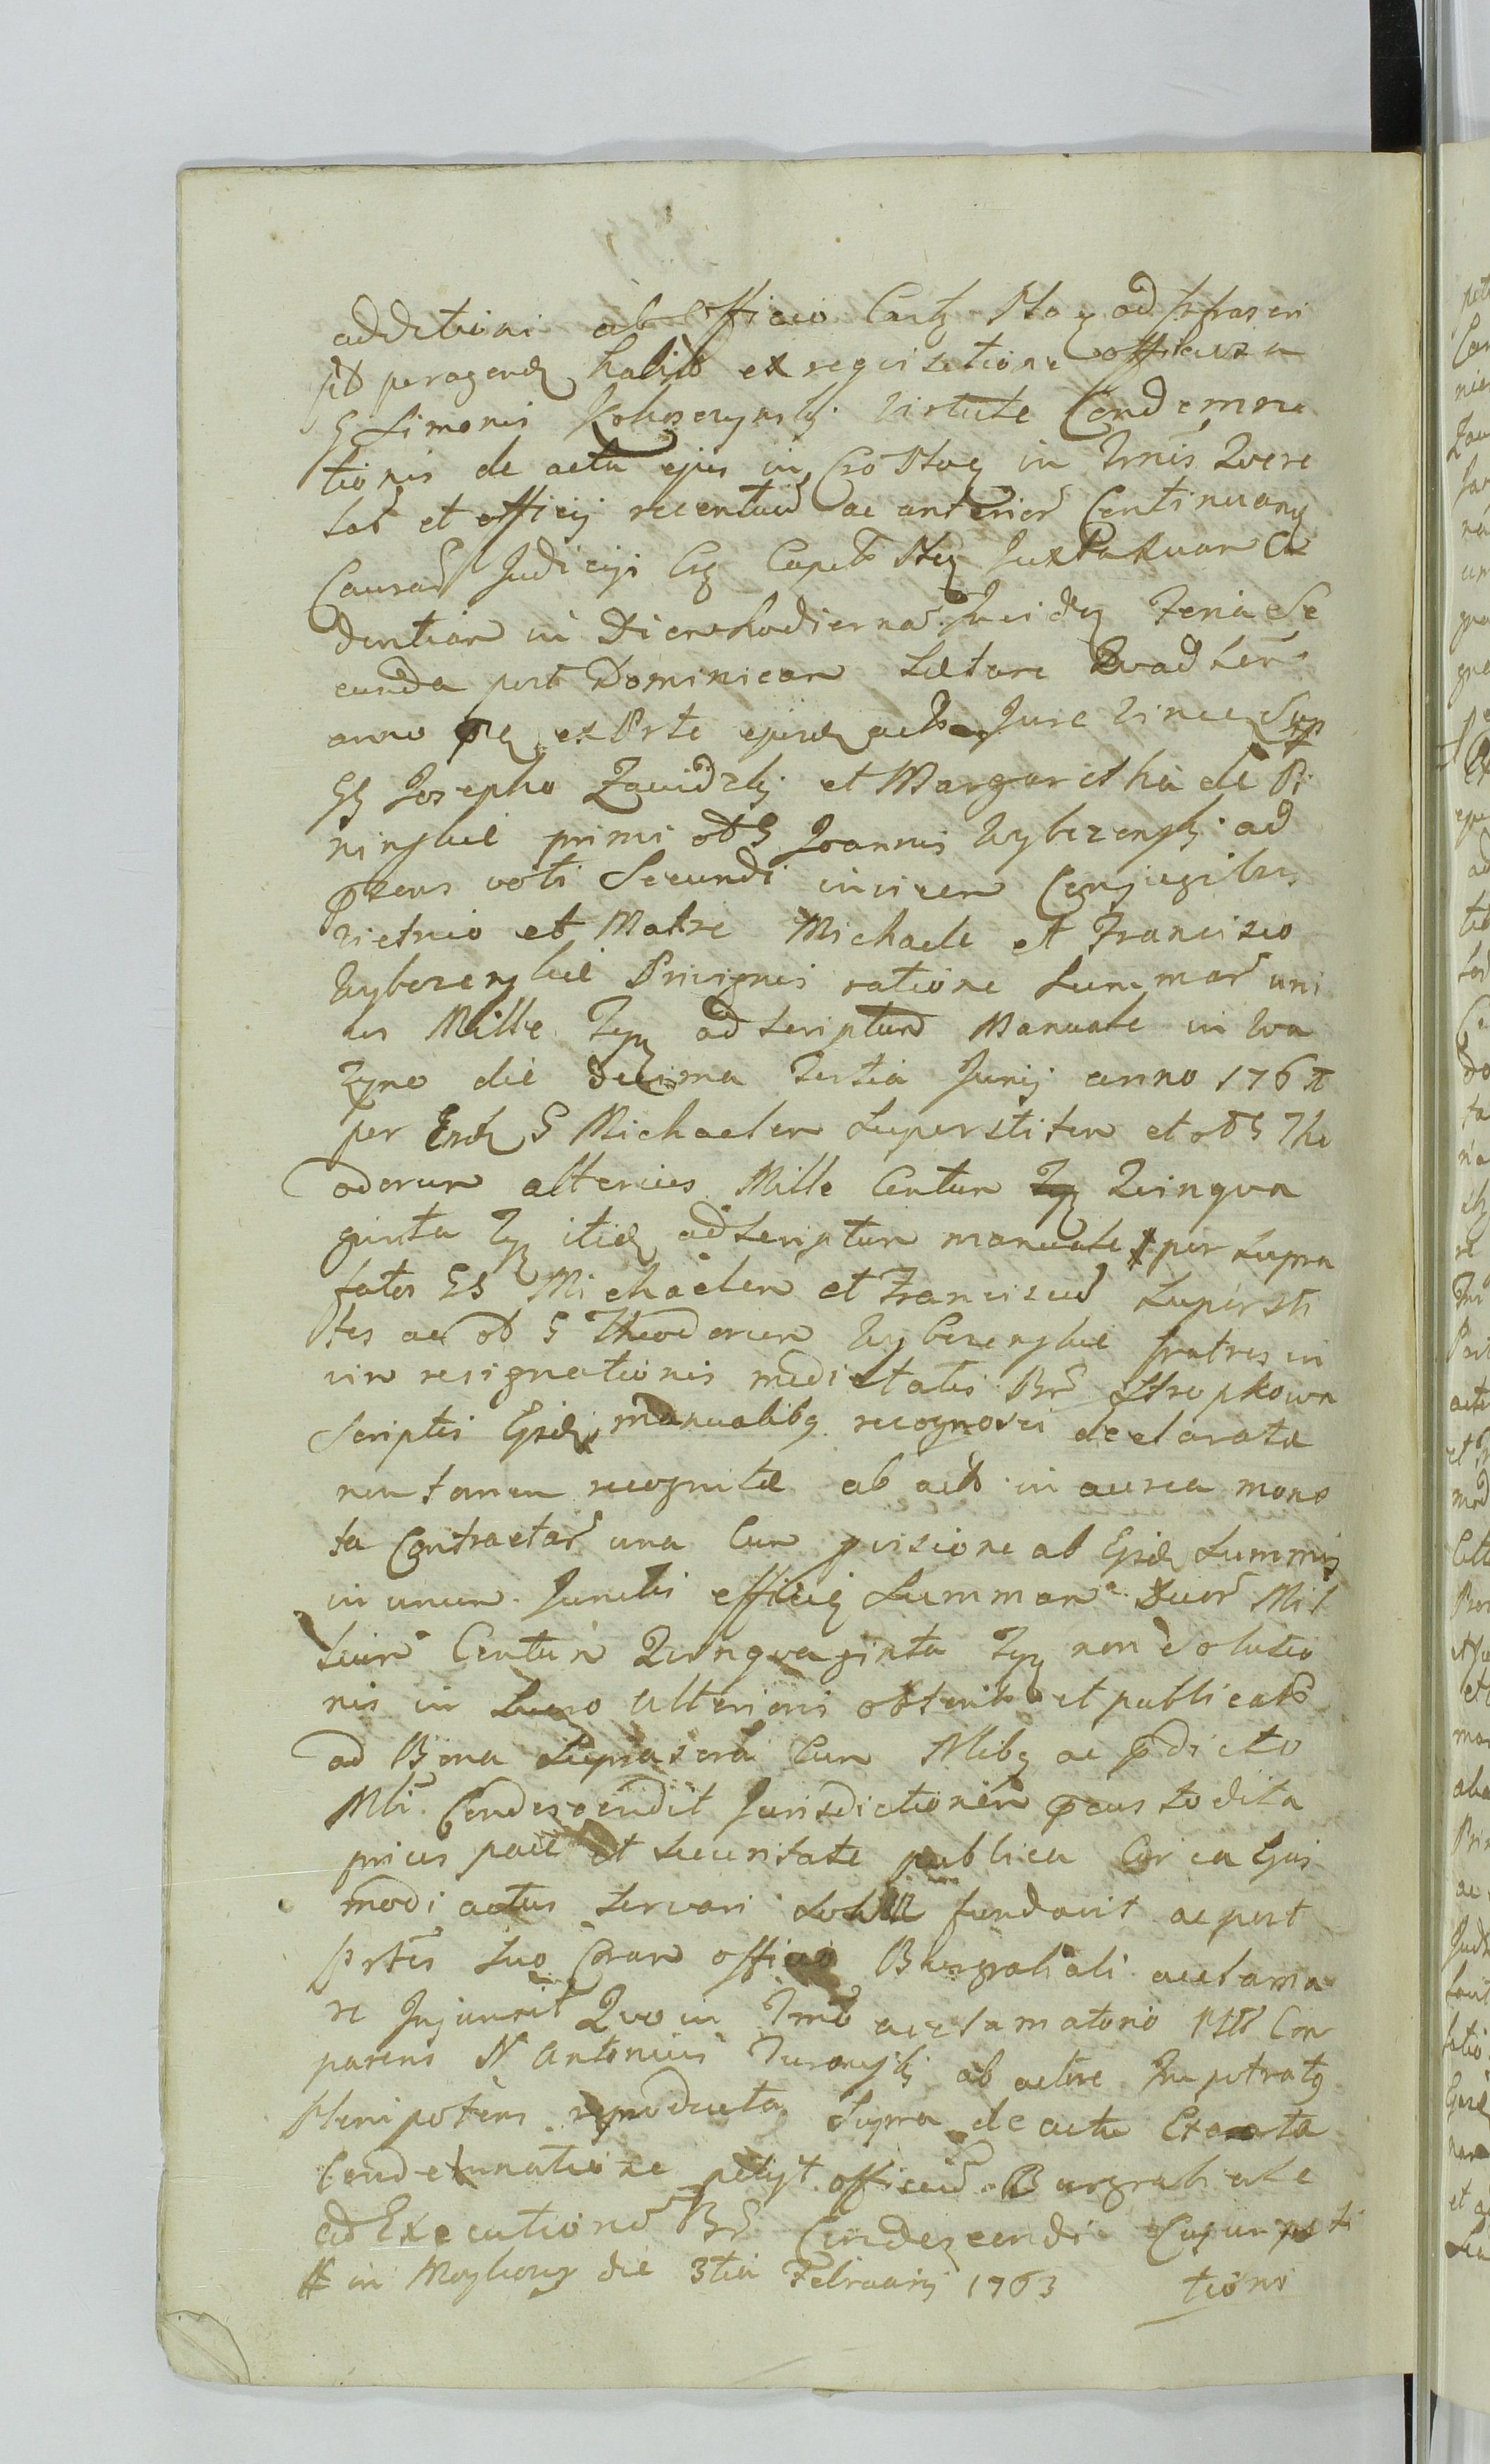 additioni ab officio Castq ad infrascri
pta peragend habito ex requisitione officiosa
G Simonis Virtute Condemna
tionis de actu ejus in Cro in Trnis Quere
lar et officij recentium ac anterior Continuang
Causar Judicij Crg Capit Juxta suam Ca
dentiam in Diem hodierna Incideq Feria Se
cunda post Dominicam Lætare Quadler
anno prq ex Prte ejusdq actore Jure Vince Sup
GG Josepho Zawidzky et Margaritha de Pi
ninskie primi od G Joannis Wyberzensky ad
præns voti Secundi invicem Conjugibus
Vitrico et Matre Michaele et Francisco
Wyberzenskie Privignis ratione Summar uni
us Mille Fpq ad scriptum Manuale in Wa
zyno die Decima Tertia Junij anno 176
per Eund G Michaelem Superstitem et od G The
odorum alterius Mille Centum Quinqua
ginta Fpq itidq ad scriptum manuale # per supra
fatos GG Michaelem et Franciscum supersti
tes ac od G Theodorum Wyberzenskie fratres in
vim resignationis medietatis Br Stropkowa
Scriptis Ejsdq manualibq recognosci declarata
non tamen recognitæ ab acto in aurea mone
ta Contractar una Cum provisione ab Ejsdq Summis
in unum Junctis efficieq Summam Duor Mil
lium Centum Quinquaginta Fpq non Solutio
nis in Lucro Ulterioris obtento et publicato
ad Bona Suprascra Cum Nlibq ac prædicto
Mli Condescendit Jurisdictionem præcustodita
prius pace et securitate publica Circa Ejus
modi actus servari solita fundavit ac post
Prtes suo Coram officio Burgrabiali acclama
re Injunxit Quo in Trmo acclamatorio Com
parens N Antonius ab actore
Plenipotens reproducta Supra de actu Exarata
Condemnatione petijt officium Burgrabiale
ad Executionem Br Condescendi Cujus
# in die 3tia Februarij 1763 tioni